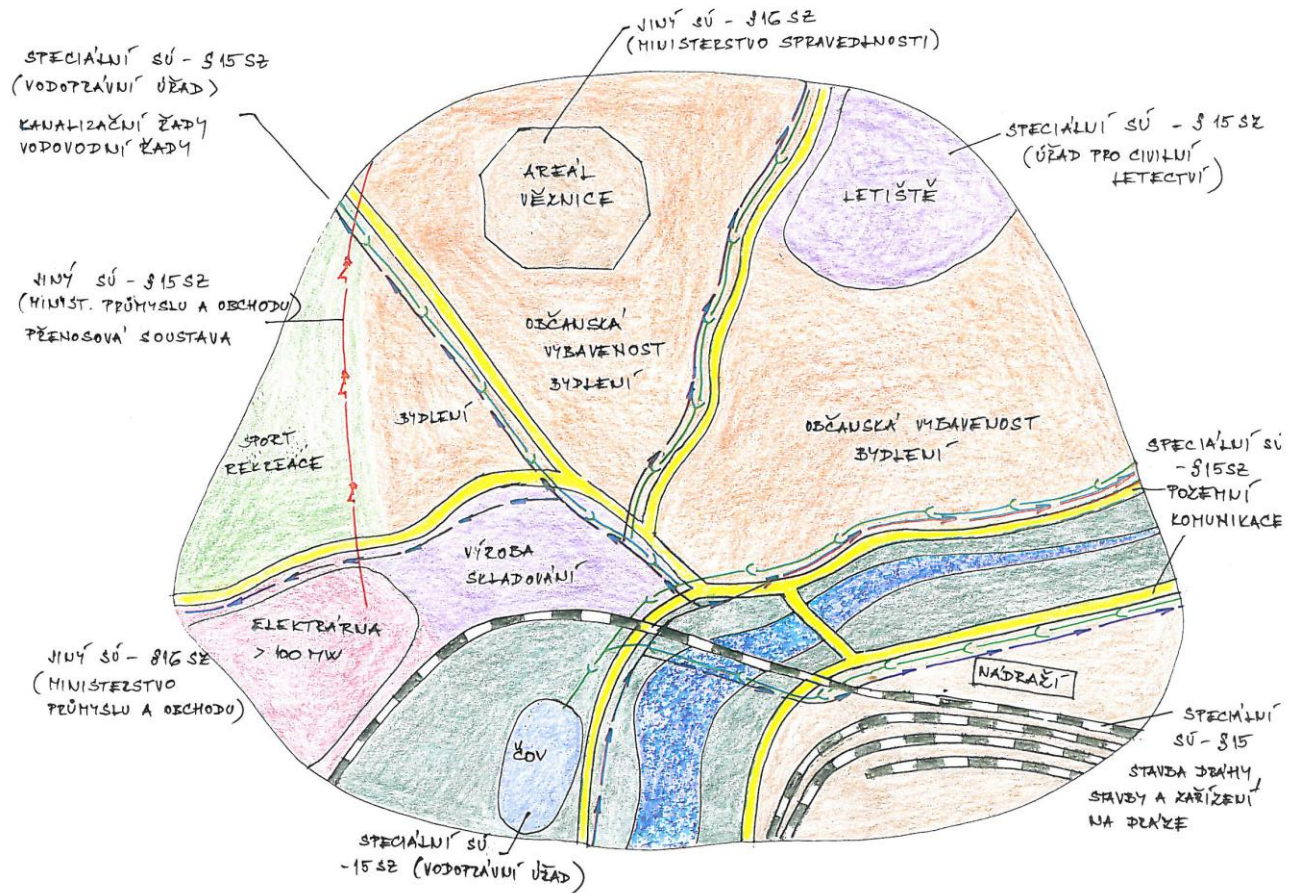 JINÝ SÚ - §16 SZ
(MINISTERSTVO SPRAVEDLNOSTI)
SPECIÁLNÍ SÚ - §15 SZ
(VODOPRÁVNÍ ÚŘAD)
KANALIZAČNÍ ŘADY
VODOVODNÍ ŘADY
SPECIÁLNÍ SÚ - §15 SZ
(ÚŘAD PRO CIVILNÍ
LETECTVÍ)
AREÁL
VĚZNICE
LETIŠTĚ
JINÝ SÚ - §15 SZ
(MINIST. PRŮMYSLU A OBCHODU)
PŘENOSOVÁ SOUSTAVA
OBČANSKÁ
VYBAVENOST
BYDLENÍ
BYDLENÍ
SPORT
REKREACE
OBČANSKÁ VYBAVENOST
BYDLENÍ
SPECIÁLNÍ SÚ
- §15SZ
POZEMNÍ
KOMUNIKACE
VÝROBA
SKLADOVÁNÍ
ELEKTRÁRNA
> 100 MW
JINÝ SÚ - §16 SZ
(MINISTERSTVO
PRŮMYSLU A OBCHODU)
NÁDRAŽÍ
SPECIÁLNÍ
SÚ - §15
STAVBA DRÁHY
STAVBY A ZAŘÍZENÍ
NA DRÁZE
ČOV
SPECIÁLNÍ SÚ
-15 SZ (VODOPRÁVNÍ ÚŘAD)